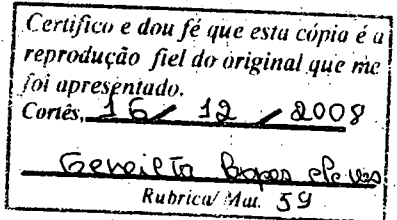 Certifico e dou fé que esta cópia é a
reprodução fiel do original que me
foi apresentado.
Cortês, 16 / 12 / 2008
Rubrica/ Mat. 59